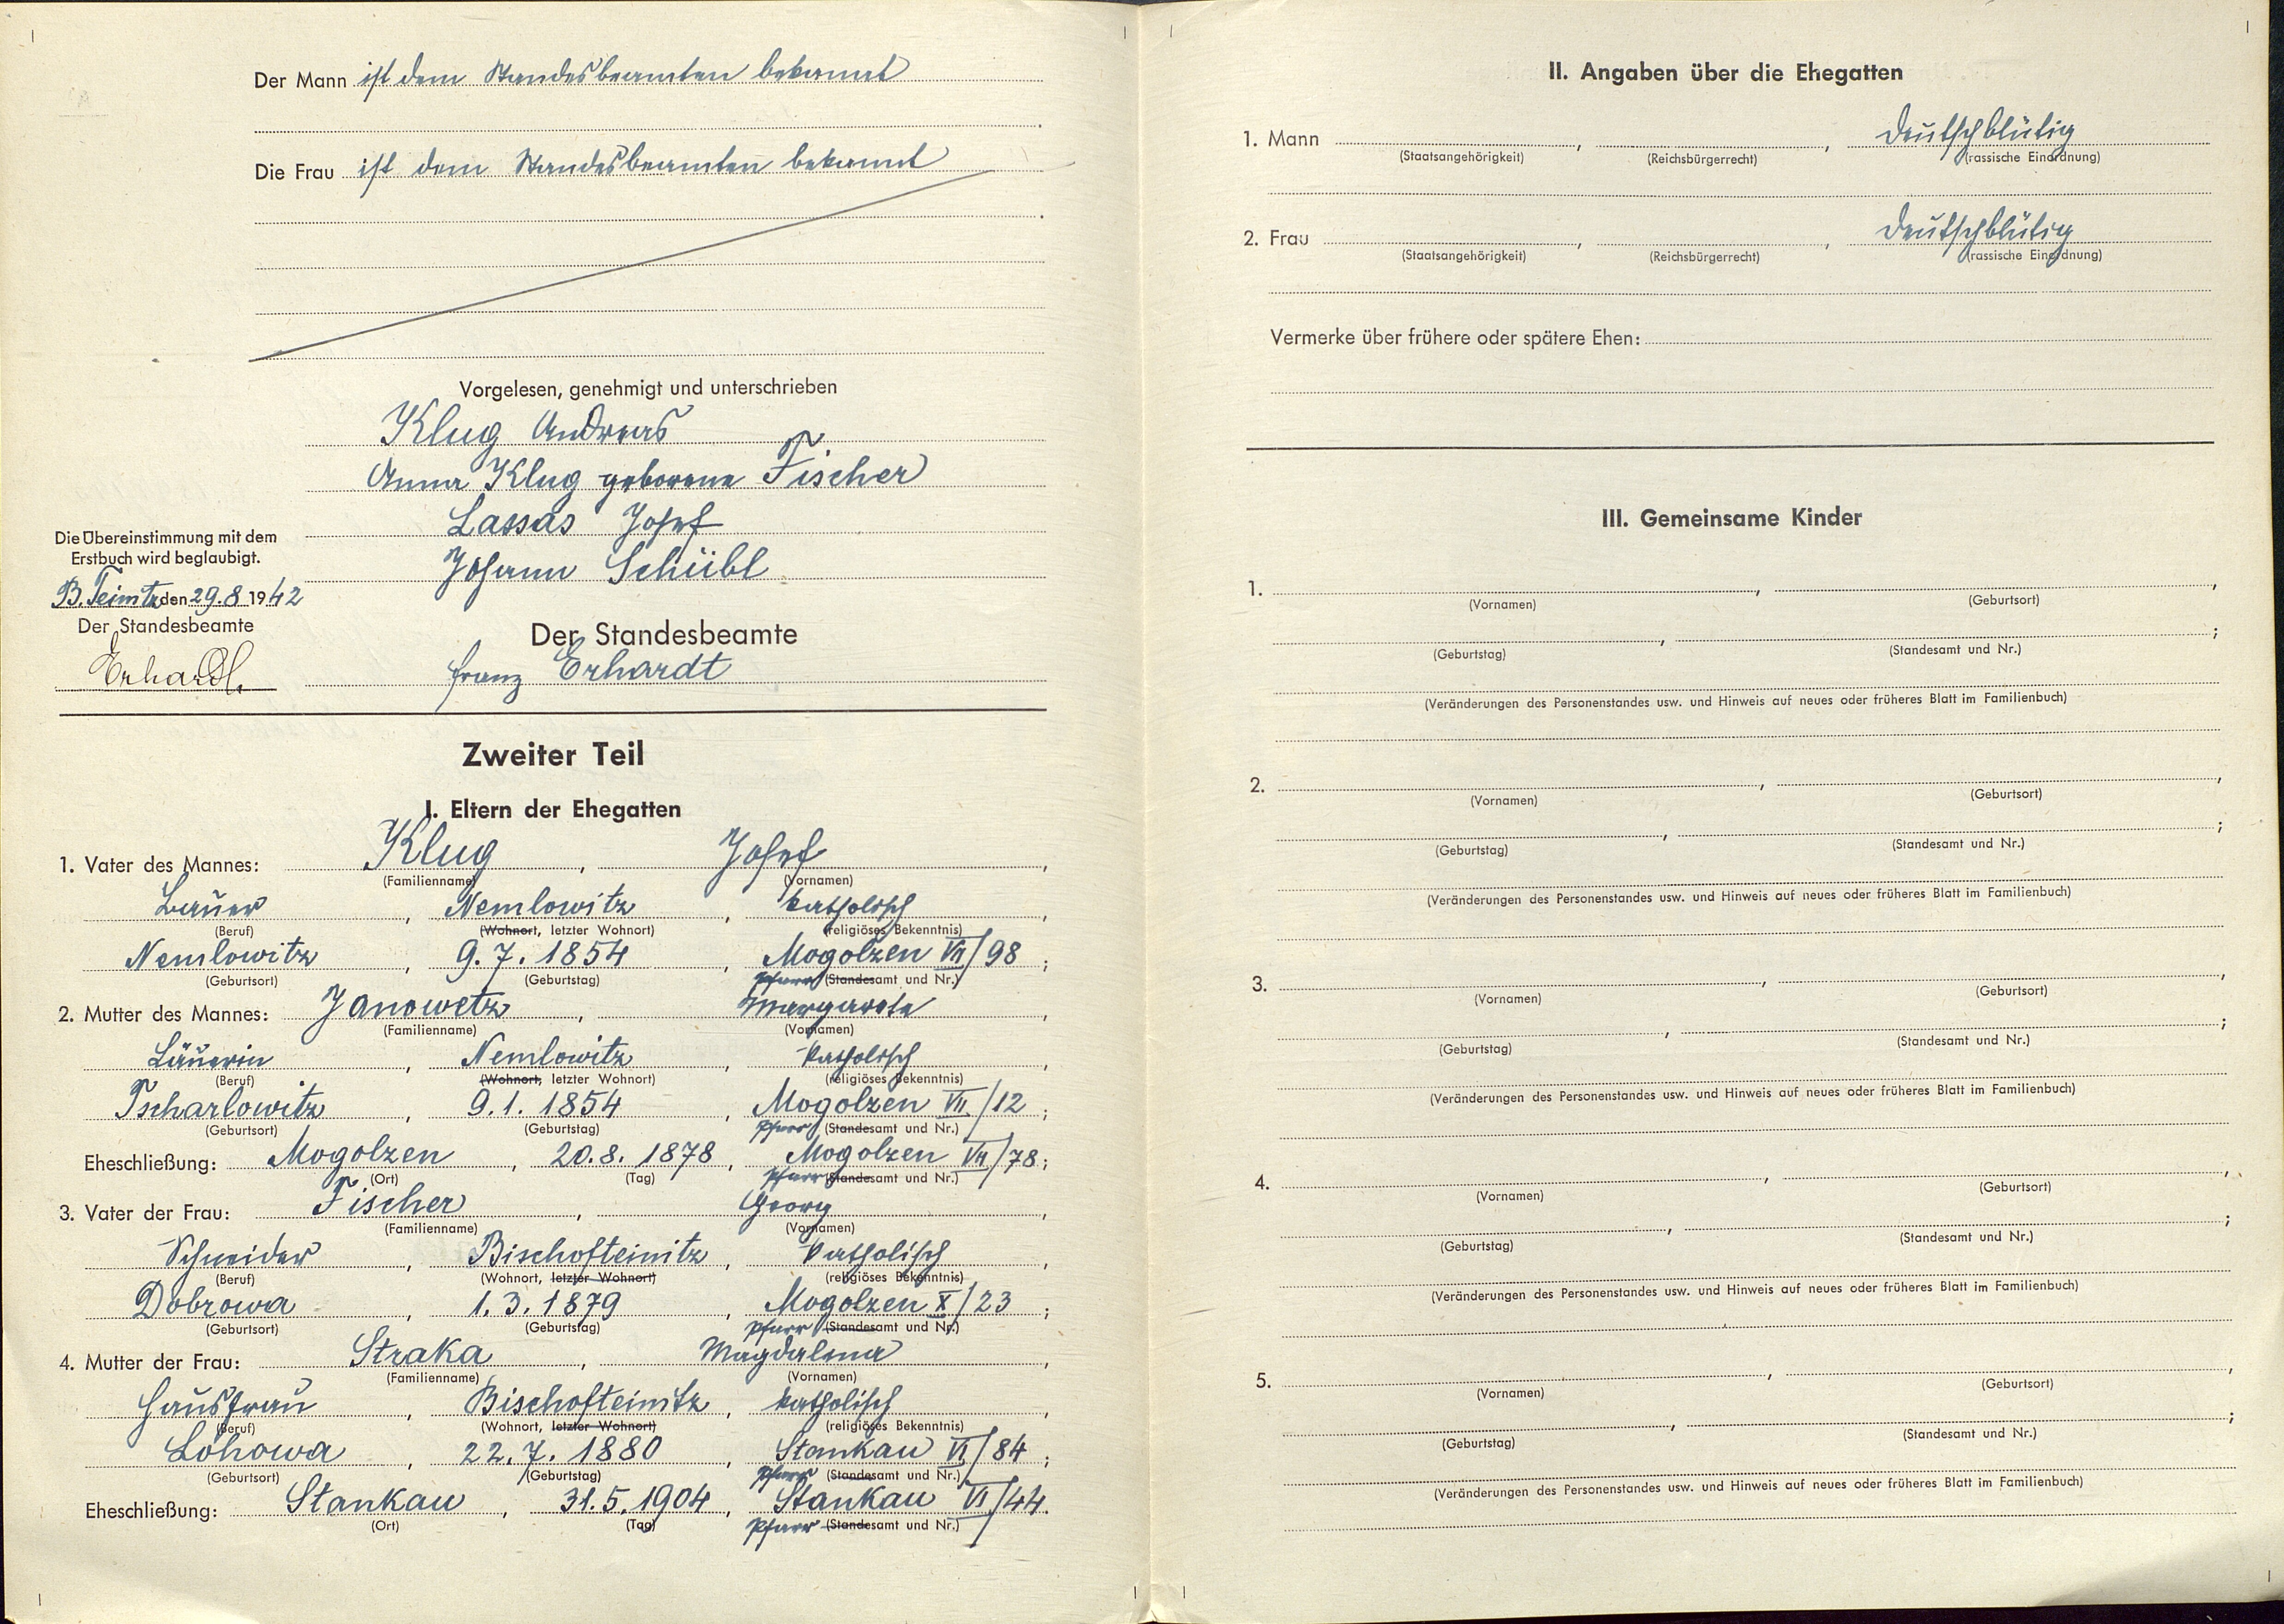 Der Mann ist dem Standesbeamten bekannt
Die Frau ist dem Standesbeamten bekannt
Vorgelesen, genehmigt und unterschrieben
Klug Andreas
Anna Klug geborene Fischer
Lassas Josef
Johann Schübl
Die Übereinstimmung mit dem
Erstbuch wird beglaubigt.
B. Teinitz den 29.8 1942
Der Standesbeamte
Erhardt.
Der Standesbeamte
Franz Erhardt
Zweiter Teil
I. Eltern der Ehegatten
1. Vater des Mannes: Klug, Josef,
(Familienname) (Vornamen)
Bauer, Nemlowitz, katholisch,
(Beruf) (Wohnort, letzter Wohnort) (religiöses Bekenntnis)
Nemlowitz, 9.7.1854, Mogolzen VII/98;
(Geburtsort) (Geburtstag) Pfarr (Standesamt und Nr.)
2. Mutter des Mannes: Janowetz, Margareta,
(Familienname) (Vornamen)
Bäuerin, Nemlowitz, katholisch,
(Beruf) (Wohnort, letzter Wohnort) (religiöses Bekenntnis)
Tscharlowitz, 9.1.1854, Mogolzen VII/12;
(Geburtsort) (Geburtstag) Pfarr (Standesamt und Nr.)
Eheschließung: Mogolzen, 20.8.1878, Mogolzen VII/78;
(Ort) (Tag) Pfarr (Standesamt und Nr.)
3. Vater der Frau: Fischer, Georg,
(Familienname) (Vornamen)
Schneider, Bischofteinitz, katholisch,
(Beruf) (Wohnort, letzter Wohnort) (religiöses Bekenntnis)
Dobrowa, 1.3.1879, Mogolzen X/23;
(Geburtsort) (Geburtstag) Pfarr (Standesamt und Nr.)
4. Mutter der Frau: Straka, Magdalena,
(Familienname) (Vornamen)
Hausfrau, Bischofteinitz, katholisch,
(Beruf) (Wohnort, letzter Wohnort) (religiöses Bekenntnis)
Lohowa, 22.7.1880, Stankau VI/84;
(Geburtsort) (Geburtstag) Pfarr (Standesamt und Nr.)
Eheschließung: Stankau, 31.5.1904, Stankau VI/44.
(Ort) (Tag) Pfarr (Standesamt und Nr.)
II. Angaben über die Ehegatten
1. Mann , , deutschblütig
(Staatsangehörigkeit) (Reichsbürgerrecht) (rassische Einordnung)
2. Frau , , deutschblütig
(Staatsangehörigkeit) (Reichsbürgerrecht) (rassische Einordnung)
Vermerke über frühere oder spätere Ehen:
III. Gemeinsame Kinder
1. , ,
(Vornamen) (Geburtsort)
, ;
(Geburtstag) (Standesamt und Nr.)
(Veränderungen des Personenstandes usw. und Hinweis auf neues oder früheres Blatt im Familienbuch)
2. , ,
(Vornamen) (Geburtsort)
, ;
(Geburtstag) (Standesamt und Nr.)
(Veränderungen des Personenstandes usw. und Hinweis auf neues oder früheres Blatt im Familienbuch)
3. , ,
(Vornamen) (Geburtsort)
, ;
(Geburtstag) (Standesamt und Nr.)
(Veränderungen des Personenstandes usw. und Hinweis auf neues oder früheres Blatt im Familienbuch)
4. , ,
(Vornamen) (Geburtsort)
, ;
(Geburtstag) (Standesamt und Nr.)
(Veränderungen des Personenstandes usw. und Hinweis auf neues oder früheres Blatt im Familienbuch)
5. , ,
(Vornamen) (Geburtsort)
, ;
(Geburtstag) (Standesamt und Nr.)
(Veränderungen des Personenstandes usw. und Hinweis auf neues oder früheres Blatt im Familienbuch)